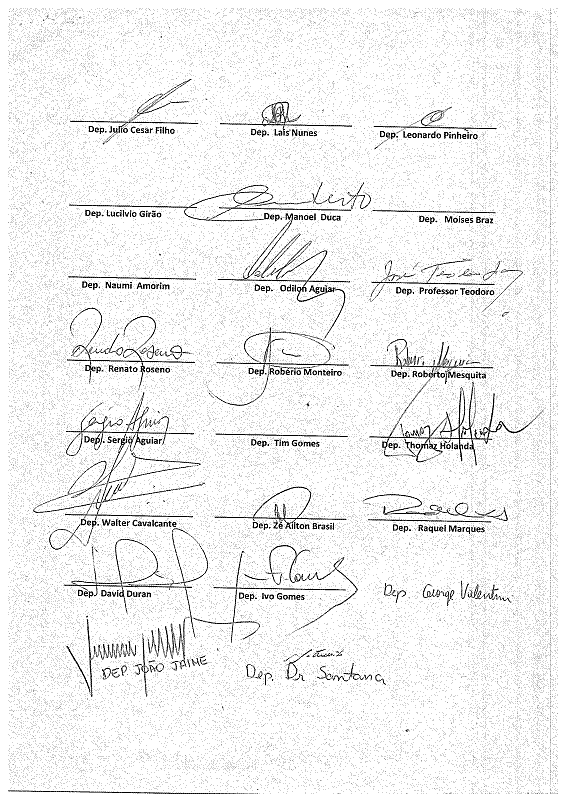 Dep. Julio Cesar Filho
Dep. Laís Nunes
Dep. Leonardo Pinheiro
Dep. Lucilvio Girão
Dep. Manoel Duca
Dep. Moises Braz
Dep. Naumi Amorim
Dep. Odilon Aguiar
José Teodoro
Dep. Professor Teodoro
Renato Roseno
Dep. Renato Roseno
Dep. Robério Monteiro
Dep. Roberto Mesquita
Sergio Aguiar
Dep. Sergio Aguiar
Dep. Tim Gomes
Dep. Thomaz Holanda
Dep. Walter Cavalcante
Dep. Zé Ailton Brasil
Dep. Raquel Marques
Dep. David Duran
Dep. Ivo Gomes
Dep. George Valentim
DEP JOÃO JAIME
Dep. Dr Santana